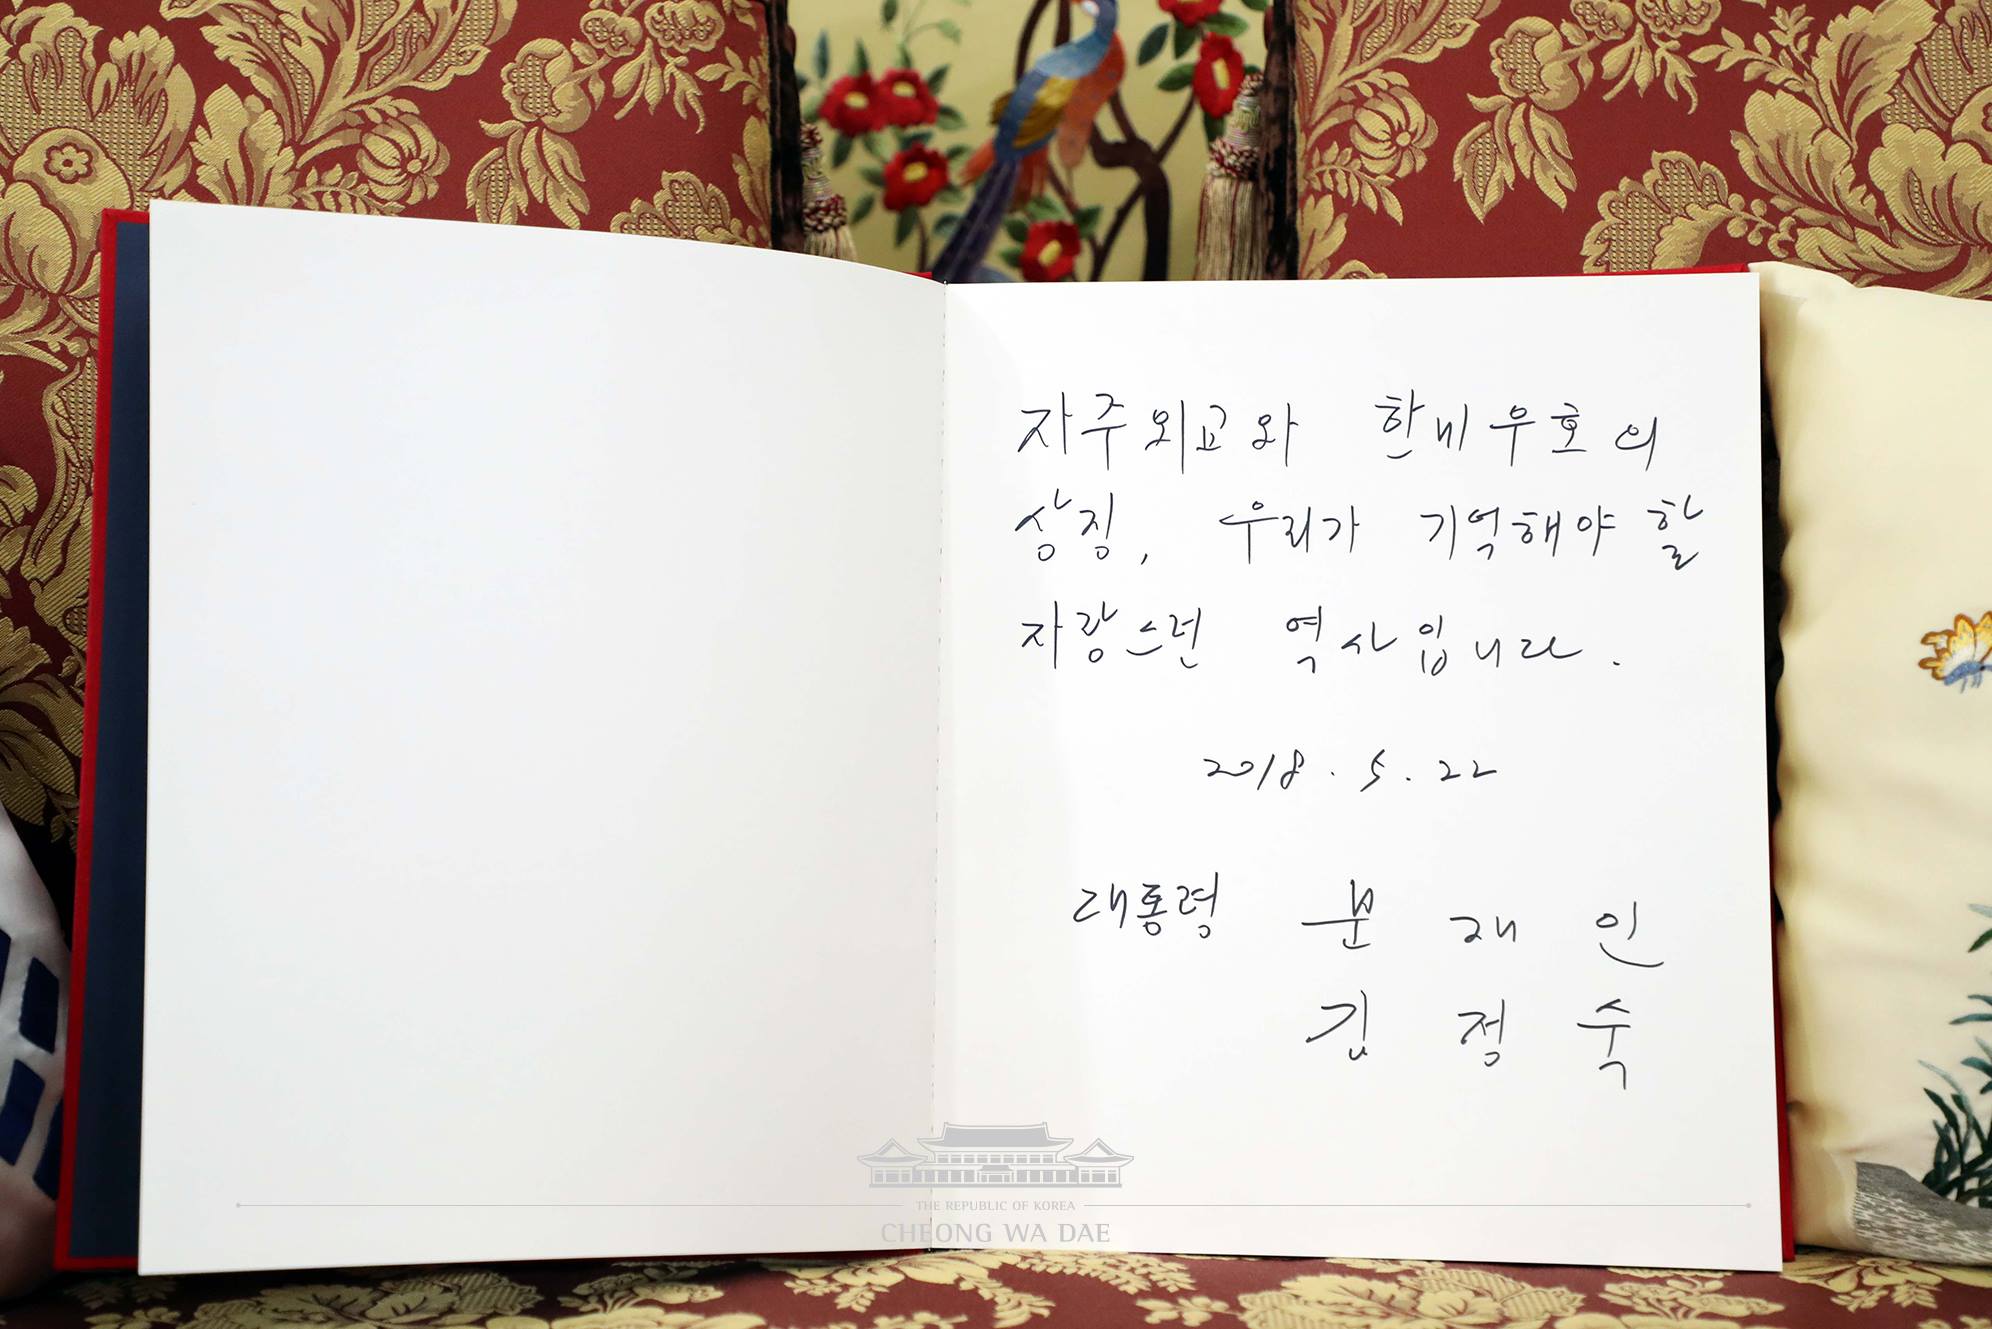 자주외교와 한미우호의
상징, 우리가 기억해야할
자랑스런 역사입니다.
2018. 5. 22
대통령 문재인
김정숙
THE REPUBLIC OF KOREA
CHEONG WA DAE